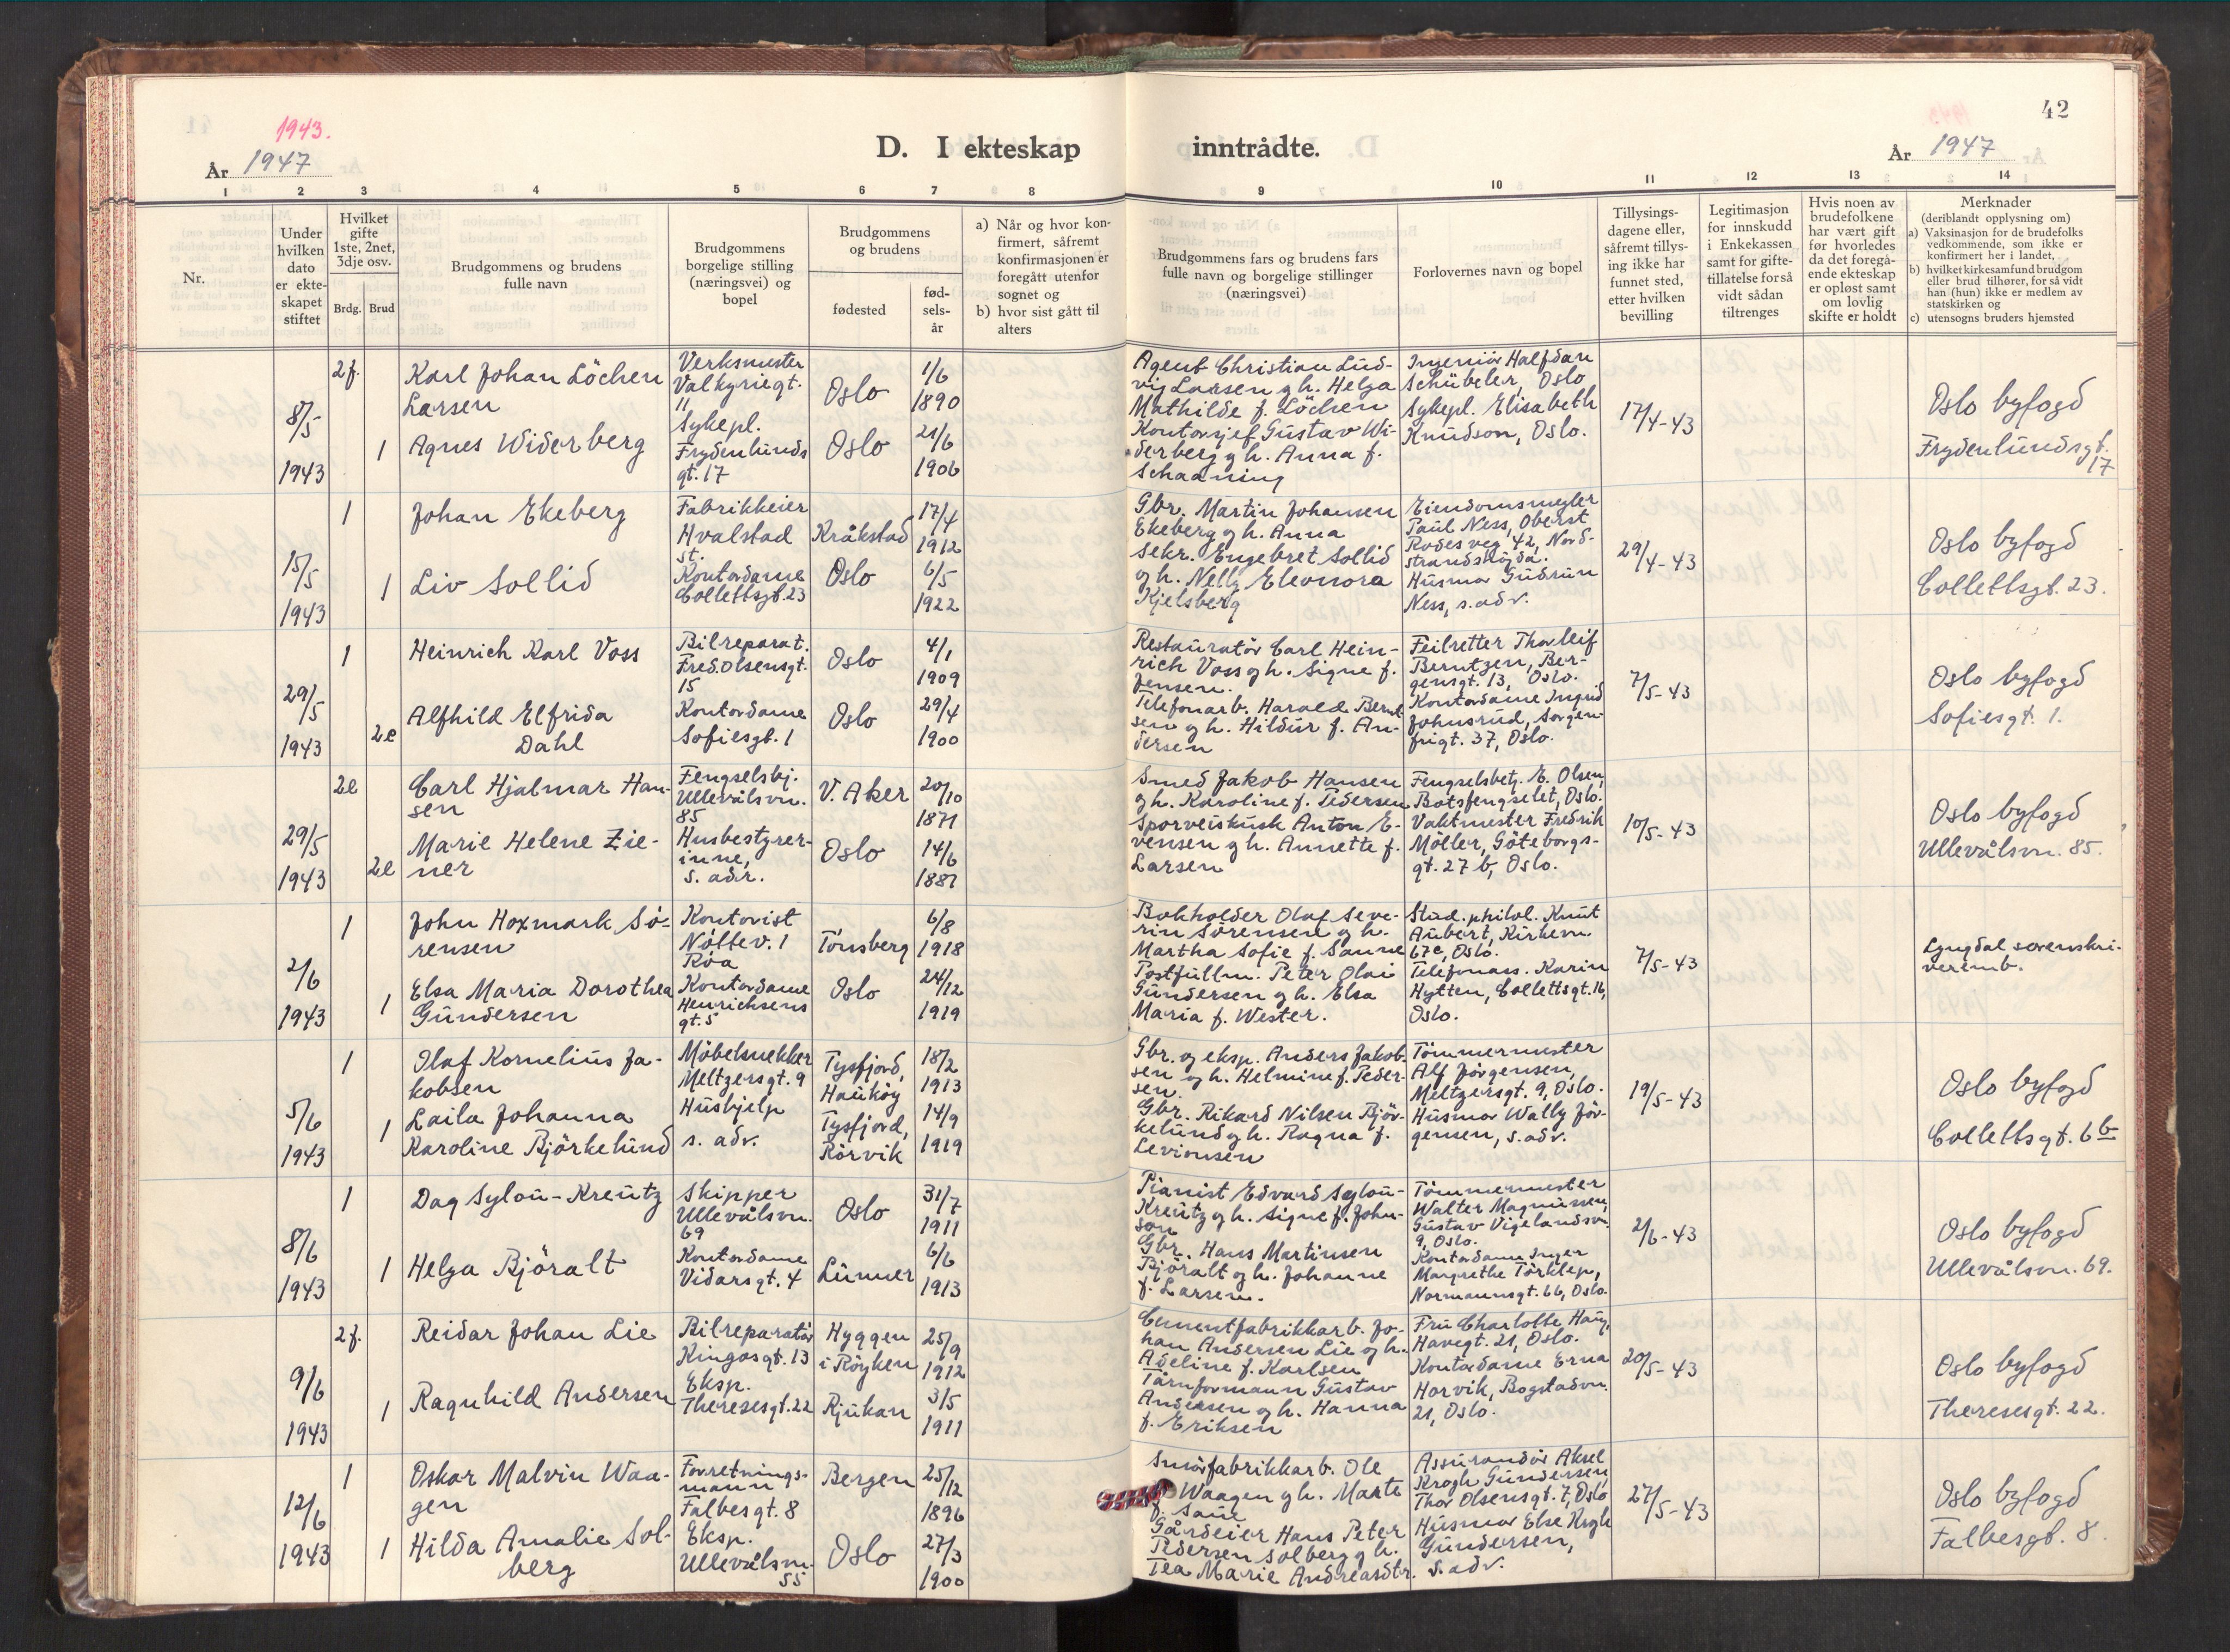 1943.
År 1947
D. I ekteskap
inntrådte.
42
År 1947
1
2
3
4
5
6
7
8
9
10
11
12
13
14
Nr.
Under
hvilken
dato
er ekte-
skapet
stiftet
Hvilket
gifte
1ste, 2net,
3dje osv.
Brdg.
Brud
Brudgommens og brudens
fulle navn
Brudgommens
borgelige stilling
(næringsvei) og
bopel
Brudgommens
og brudens
fødested
fød-
sels-
år
a) Når og hvor kon-
firmert, såfremt
konfirmasjonen er
foregått utenfor
sognet og
b) hvor sist gått til
alters
Brudgommens fars og brudens fars
fulle navn og borgelige stillinger
(næringsvei)
Forlovernes navn og bopel
Tillysings-
dagene eller,
såfremt tillys-
ing ikke har
funnet sted,
etter hvilken
bevilling
Legitimasjon
for innskudd
i Enkekassen
samt for gifte-
tillatelse for så
vidt sådan
tiltrenges
Hvis noen av
brudefolkene
har vært gift
før hvorledes
da det foregå-
ende ekteskap
er opløst samt
om lovlig
skifte er holdt
Merknader
(deriblandt opplysning om)
a) Vaksinasjon for de brudefolks
vedkommende, som ikke er
konfirmert her i landet,
b) hvilket kirkesamfund brudgom
eller brud tilhører, for så vidt
han (hun) ikke er medlem av
statskirken og
c) utensogns bruders hjemsted
8/5
1943
2f.
1
Karl Johan Löchen
Larsen
Agnes Widerberg
Verksmester
Valkyriegt.
11
Sykepl.
Frydenlunds
gt. 17
Oslo
Oslo
1/6
1890
21/6
1906
Agent Christian Lud-
vig Larsen g h. Helga
Mathilde f. Löchen
Kontorsjef Gustav Wi-
derberg g h. Anna f.
Schaanning
Ingeniör Halfdan
Schübeler, Oslo
Sykepl. Elisabeth
Knudson, Oslo.
17/4-43
Oslo byfogd
Frydenlundsgt.
17
15/5
1943
1
1
Johan Ekeberg
Liv Sollid
Fabrikkeier
Hvalstad
st.
Kontordame
Collettsgt. 23
Kråkstad
Oslo
17/4
1912
6/5
1922
Gbr. Martin Johansen
Ekeberg g h. Anna
Sekr. Engebret Sollid
g h. Nelly Eleonora
Kjelsberg
Eiendomsmegler
Paul Ness, Oberst
Rodes veg 42, Nord-
strandshögda.
Husmor Gudrun
Ness, s. adr.
29/4-43
Oslo byfogd
Collettsgt. 23.
29/5
1943
1
2e
Heinrich Karl Voss
Alfhild Elfrida
Dahl
Bilreparat.
Fred. Olsensgt.
15
Kontordame
Sofiesgt. 1
Oslo
Oslo
4/1
1909
29/4
1900
Restauratör Carl Hein-
rich Voss g h. Signe f.
Jensen.
Telefonarb. Harald Bernt-
sen g h. Hildur f. An-
dersen
Feilretter Thorleif
Berntzen, Ber-
gensgt. 13, Oslo.
Kontordame Ingrid
Johnsrud, Sorgen-
frigt. 37, Oslo.
7/5-43
Oslo byfogd
Sofiesgt. 1.
29/5
1943
2e
2e
Carl Hjalmar Han-
sen
Marie Helene Zie-
ner
Fengselsbj.
Ullevålsvn.
85
Husbestyrer-
inne,
s. adr.
V. Aker
Oslo
20/10
1871
14/6
1887
Smed Jakob Hansen
g h. Karoline f. Pedersen
Sporveiskusk Anton E-
vensen g h. Annette f.
Larsen
Fengselsbetj. E. Olsen,
Botsfengselet, Oslo.
Vaktmester Fredrik
Möller, Göteborgs-
gt. 27 b, Oslo.
10/5-43
Oslo byfogd
Ullevålsvn. 85.
2/6
1943
1
1
John Hoxmark Sö-
rensen
Elsa Maria Dorothea
Gundersen
Kontorist
Nöttev. 1
Röa
Kontordame
Henrichsens
gt. 5
Tönsberg
Oslo
6/8
1918
24/12
1919
Bokholder Olaf Seve-
rin Sörensen g h.
Martha Sofie f. Sanne
Postfullm. Peter Olai
Gundersen g h. Elsa
Maria f. Wester.
Stud. philol. Knut
Aubert, Kirkevn.
67c, Oslo.
Telefonass. Karin
Hytten, Collettsgt. 16,
Oslo.
7/5-43
Lyngdal sorenskri-
veremb.
5/6
1943
1
1
Olaf Kornelius Ja-
kobsen
Laila Johanna
Karoline Björkelund
Möbelsnekker
Meltzersgt. 9
Hushjelp
s. adr.
Tysfjord,
Hauköy
Tysfjord,
Rörvik
18/2
1913
14/9
1919
Gbr. og eksp. Anders Jakob-
sen g h. Helmine f. Peder-
sen.
Gbr. Rikard Nilsen Björ-
kelund g h. Ragna f.
Levionsen
Tömmermester
Alf Jörgensen,
Meltzersgt. 9, Oslo.
Husmor Wally Jör-
gensen, s. adr.
19/5-43
Oslo byfogd
Collettsgt. 6b
8/6
1943
1
1
Dag Sylou-Kreutz
Helga Björalt
Skipper
Ullevålsvn.
69
Kontordame
Vidarsgt. 4
Oslo
Lunner
31/7
1911
6/6
1913
Pianist Edvard Sylou-
Kreutz g h. Signe f. John-
son
Gbr. Hans Martinsen
Björalt g h. Johanne
f. Larsen.
Tömmermester
Walter Magnussen,
Gustav Vigelandsv.
9, Oslo.
Kontordame Inger
Margrethe Törklep,
Normannsgt. 66, Oslo.
2/6-43
Oslo byfogd
Ullevålsvn. 69.
9/6
1943
2f.
1
Reidar Johan Lie
Ragnhild Andersen
Bilreparatör
Kingosgt. 13
Eksp.
Theresesgt. 22
Hyggen
i Röyken
Rjukan
25/9
1912
3/5
1911
Cementfabrikkarb. Jo-
han Andersen Lie g h.
Adeline f. Karlsen
Tårnformann Gustav
Andersen g h. Hanna
f. Eriksen
Fru Charlotte Haug,
Havegt. 21, Oslo.
Kontordame Erna
Horvik, Bogstadvn.
21, Oslo.
20/5-43
Oslo byfogd
Theresesgt. 22.
12/6
1943
1
1
Oskar Malvin Waa-
gen
Hilda Amalie Sol-
berg
Forretnings-
mann
Falbesgt. 8
Eksp.
Ullevålsvn.
55
Bergen
Oslo
25/12
1896
27/3
1900
Smörfabrikkarb. Ole
Waagen g h. Marte
f. Saue
Gårdeier Hans Peter
Pedersen Solberg g h.
Tea Marie Andreasdtr.
Assurandör Aksel
Krogh Gundersen
Thor Olsensgt. 7, Oslo
Husmor Else Krogh
Gundersen,
s. adr.
27/5-43
Oslo byfogd
Falbesgt. 8.